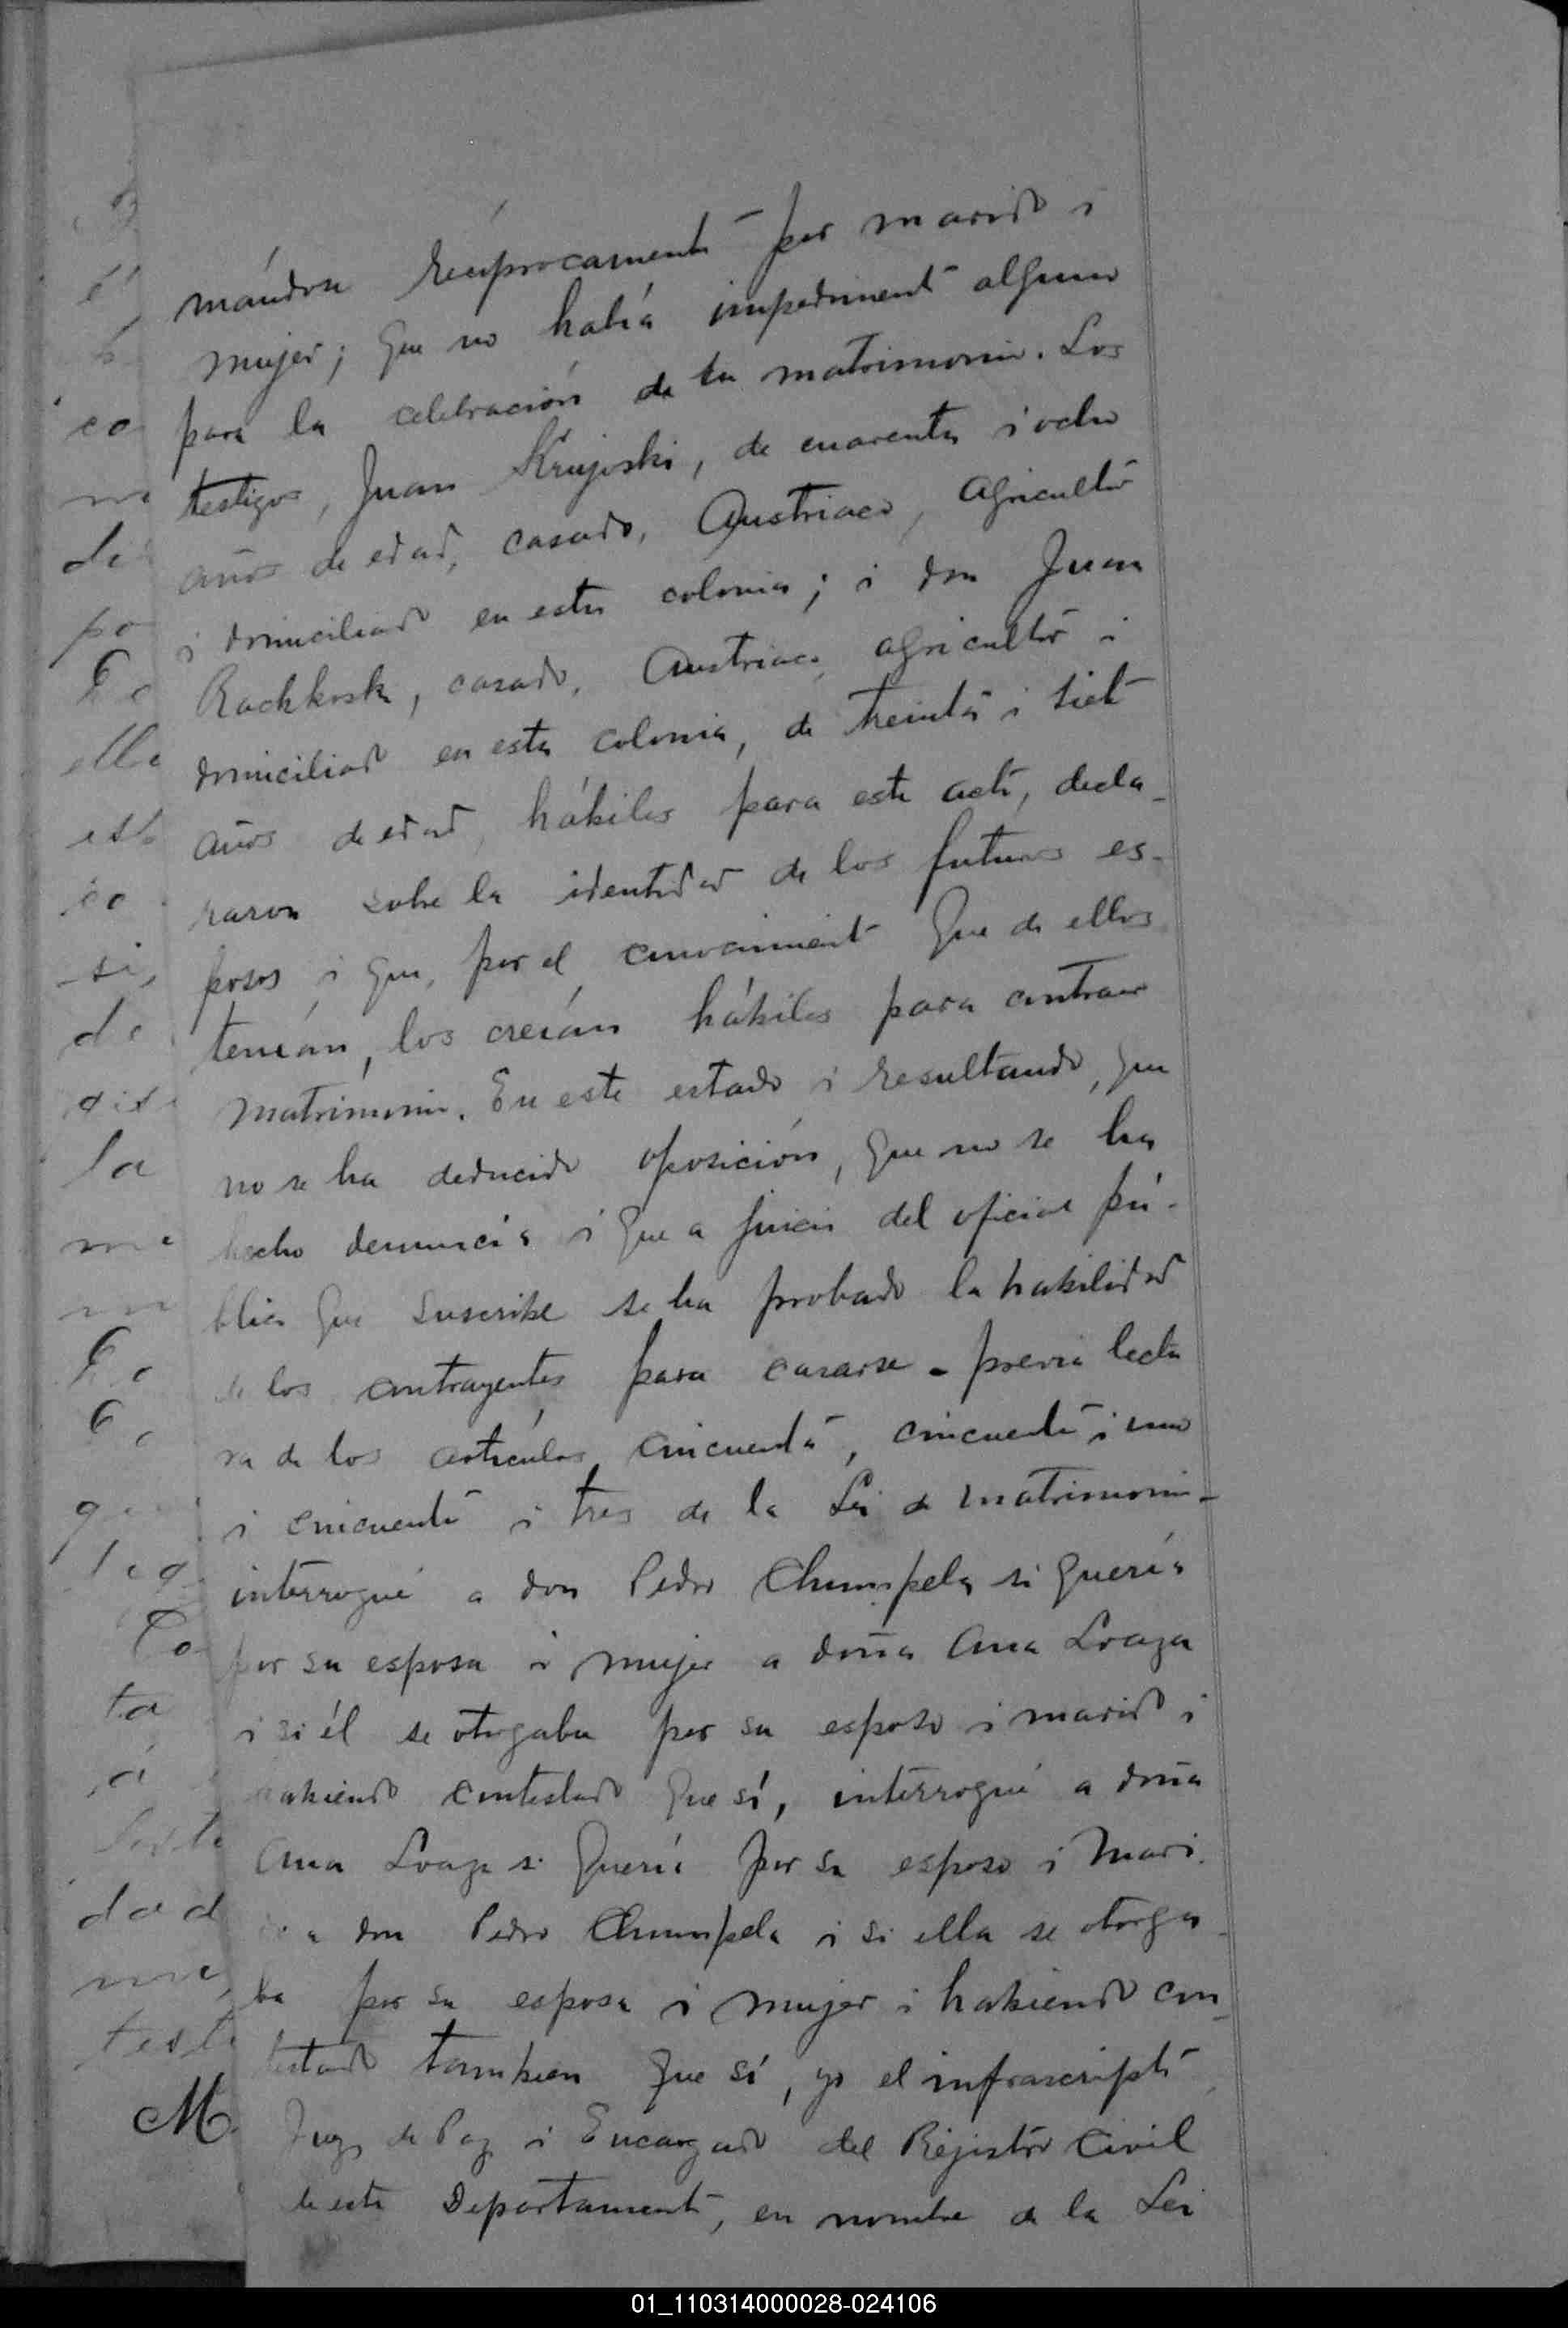 mándose recíprocamente por marido i
mujer; que no había impedimento alguno
para la celebración de su matrimonio. Los
testigos, Juan Krujoski, de cuarenta i ocho
años de edad, casado, Austriaco, agricultor
i domiciliado en esta colonia; i don Juan
Rachkoski, casado, Austriaco, agricultor i
domiciliado en esta colonia, de treinta i siete
años de edad, hábiles para este acto, decla-
raron sobre la identidad de los futuros es-
posos i que, por el conocimiento que de ellos
tenían, los creían hábiles para contraer
matrimonio. En este estado i resultando, que
no se ha deducido oposición, que no se ha
hecho denuncia i que a juicio del oficial pú-
blico que suscribe se ha probado la habilidad
de los contrayentes para casarse - previa lectu
ra de los artículos cincuenta, cincuenta i uno
i cincuenta i tres de la Lei de matrimonio -
interrogué a don Pedro Chumpela si quería
por su esposa i mujer a doña Ana Loaza
i si él se otorgaba por su esposo i marido i
habiendo contestado que sí, interrogué a doña
Ana Loaza si quería por su esposo i mari-
do a don Pedro Chumpela i si ella se otorga-
ba por su esposa i mujer i habiendo con-
testado tambien que sí, yo el infrascripto
Juez de Paz i Encargado del Rejistro Civil
de este Departamento, en nombre de la Lei
01_110314000028-024106